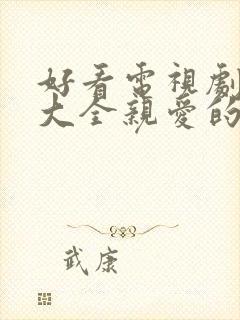 好看電視劇
大全親愛的
武康